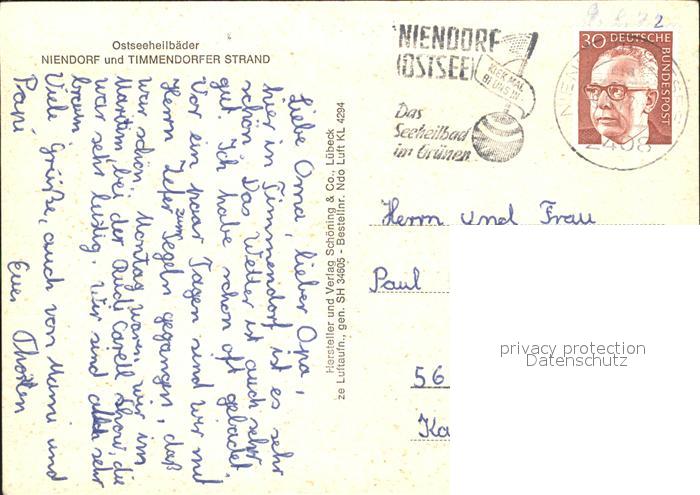 Ostseeheilbäder
NIENDORF und TIMMENDORFER STRAND
Liebe Oma, lieber Opa,
hier in Timmendorf ist es sehr
schön. Das Wetter ist auch sehr
gut. Ich habe schon oft gebadet.
Vor ein paar Tagen sind wir mit
Herrn zum Segeln gegangen, daß
war schön. Montag waren wir im
Maritim, bei der Rudi Carell Show, die
war sehr lustig. Wir sind sehr
braun
Viele Grüße, auch von Mami und
Papi
Euer Thorsten
Hersteller und Verlag Schöning & Co., Lübeck
ze Luftaufn., gen. SH 34605 - Bestellnr. Ndo Luft KL 4294
NIENDORF
(OSTSEE)
Das
Seeheilbad
im Grünen
30 DEUTSCHE
BUNDESPOST
2408
Herrn und Frau
Paul
56
Ka
privacy protection
Datenschutz